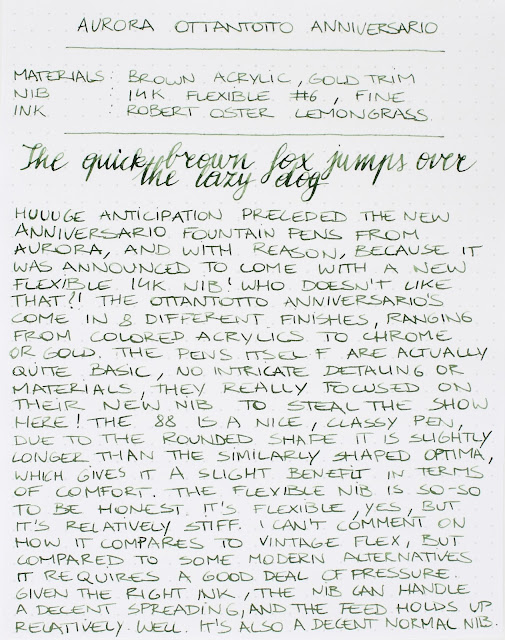 AURORA OTTANTOTTO ANNIVERSARIO
MATERIALS : BROWN ACRYLIC, GOLD TRIM
NIB : 14K FLEXIBLE #6, FINE
INK : ROBERT OSTER LEMONGRASS
The quick brown fox jumps over
the lazy dog
HUUUGE ANTICIPATION PRECEDED THE NEW
ANNIVERSARIO FOUNTAIN PENS FROM
AURORA, AND WITH REASON, BECAUSE IT
WAS ANNOUNCED TO COME WITH A NEW
FLEXIBLE 14K NIB! WHO DOESN'T LIKE
THAT?! THE OTTANTOTTO ANNIVERSARIO'S
COME IN 8 DIFFERENT FINISHES, RANGING
FROM COLORED ACRYLICS TO CHROME
OR GOLD. THE PENS ITSELF ARE ACTUALLY
QUITE BASIC, NO INTRICATE DETAILING OR
MATERIALS, THEY REALLY FOCUSED ON
THEIR NEW NIB TO STEAL THE SHOW
HERE! THE 88 IS A NICE, CLASSY PEN,
DUE TO THE ROUNDED SHAPE IT IS SLIGHTLY
LONGER THAN THE SIMILARLY SHAPED OPTIMA,
WHICH GIVES IT A SLIGHT BENEFIT IN TERMS
OF COMFORT. THE FLEXIBLE NIB IS SO-SO
TO BE HONEST. IT'S FLEXIBLE, YES, BUT
IT'S RELATIVELY STIFF. I CAN'T COMMENT ON
HOW IT COMPARES TO VINTAGE FLEX, BUT
COMPARED TO SOME MODERN ALTERNATIVES
IT REQUIRES A GOOD DEAL OF PRESSURE.
GIVEN THE RIGHT INK, THE NIB CAN HANDLE
A DECENT SPREADING, AND THE FEED HOLDS UP
RELATIVELY WELL. IT'S ALSO A DECENT NORMAL NIB.